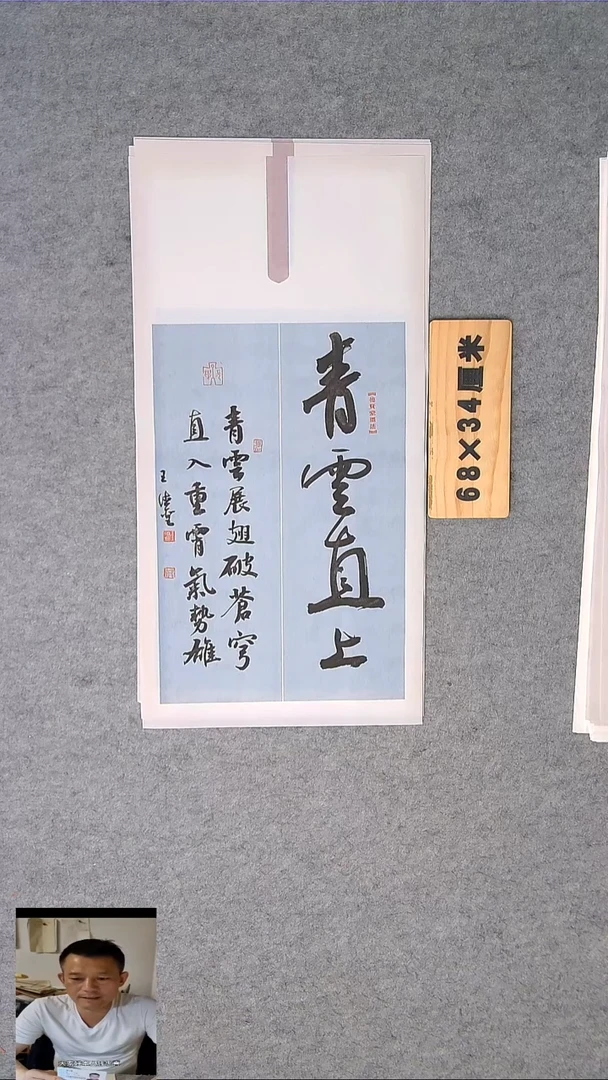 青雲直上
青雲展翅破蒼穹
直入重霄氣勢雄
68×34厘米